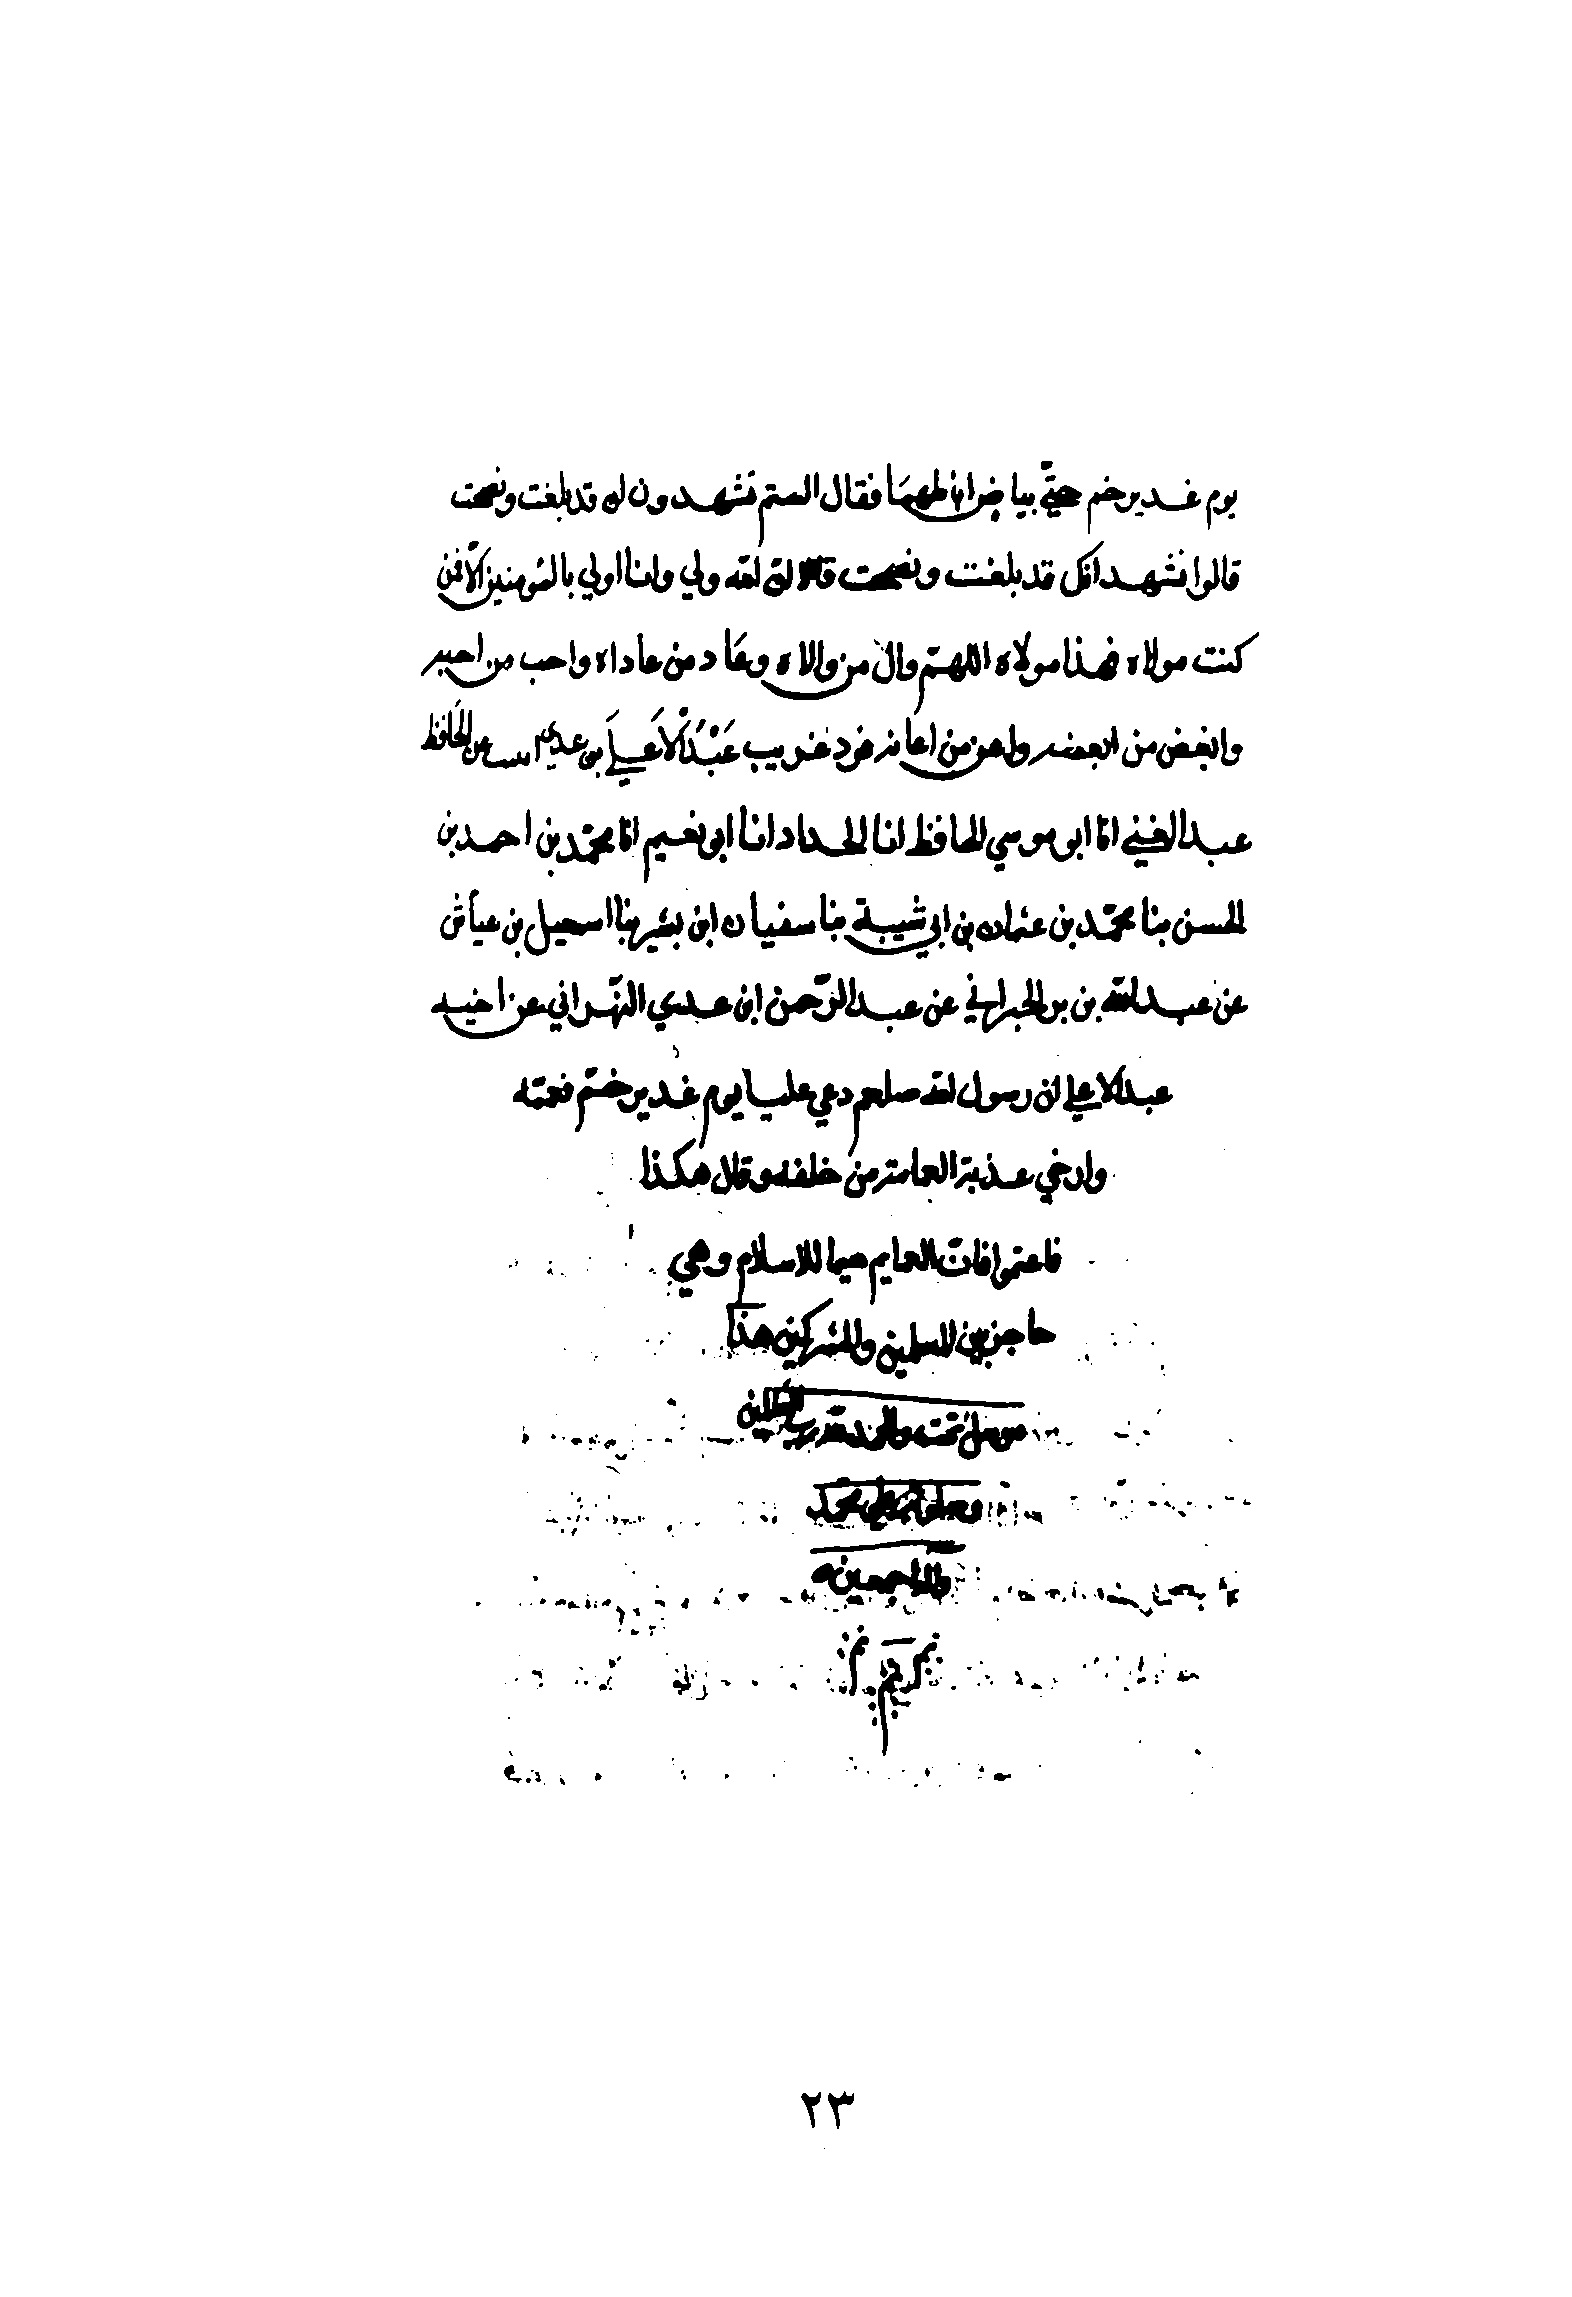 يوم غدير خم حتي بياض ابطهما فقال الستم تشهدون ان قد بلغت ونصحت
قالوا نشهد انك قد بلغت ونصحت قال الله ولي وانا اولي بالمؤمنين الا فمن
كنت مولاه فهذا مولاه اللهم وال من والاه وعاد من عاداه واحب من احبه
وابغض من ابغضه واعن من اعانه فرد غريب عَبْدُالْاَعلَي بن عدي عن الحافظ
عبد الغني انا ابو موسي الحافظ انا الحداد انا ابو نعيم انا محمّد بن احمد بن
الحسن بنا محمّد بن عثمان بن ابي شيبة بنا سفيان ابن بشير بنا اسمعيل بن عياش
عن عبد الله بن بر الحبراني عن عبد الرّحمن ابن عدي النهراني عن اخيه
عبد الاعلي ان رسول الله صلعم دعي عليا يوم غدير خم فعممه
وارخي عذبة العمامة من خلفه وقال هكذا
فاعتموا فان العمايم سيما الاسلام وهي
حاجز بين المسلمين والمشركين هذا
تمت والحمد لله رب العالمين
وصلواته علي محمّد
واله اجمعين
٢٣